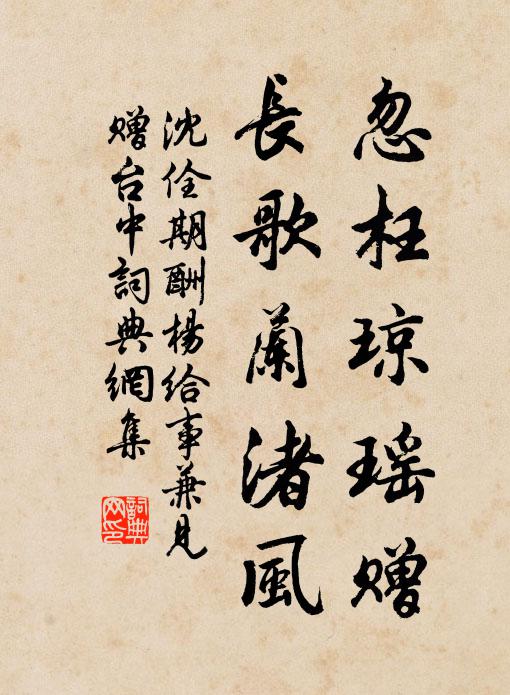 忽枉琼瑶赠
長歌蘭渚風
沈佺期酬楊给事兼見
赠台中詞典網集
詞典
网印